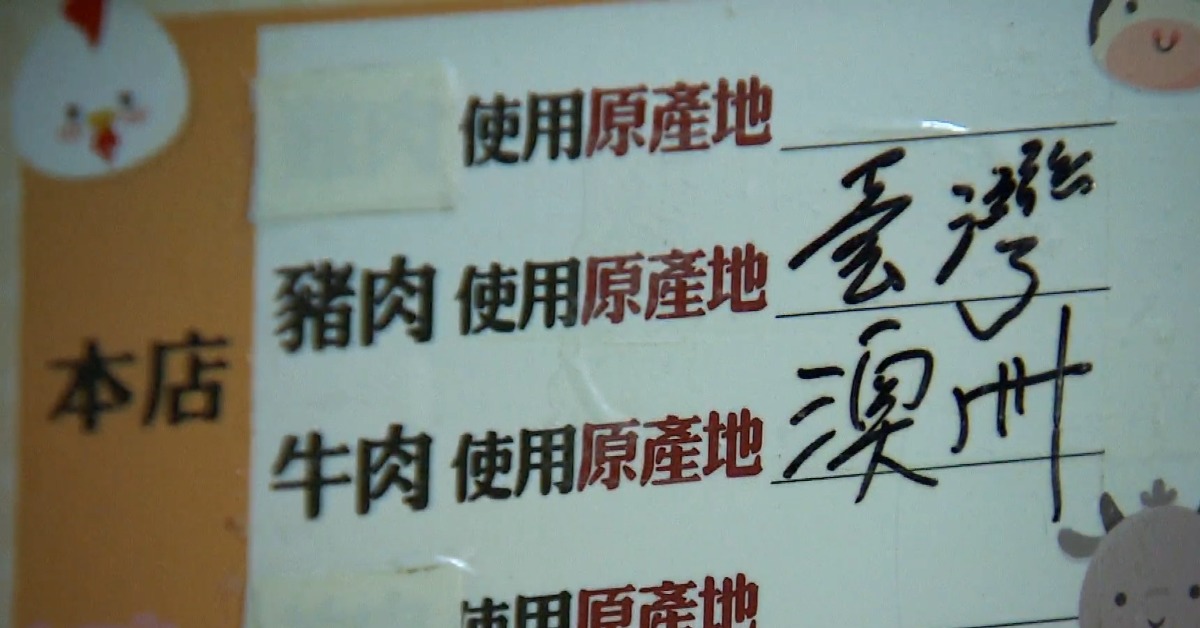 使用原產地
豬肉使用原產地 臺灣
本店
牛肉使用原產地 澳洲
使用原產地